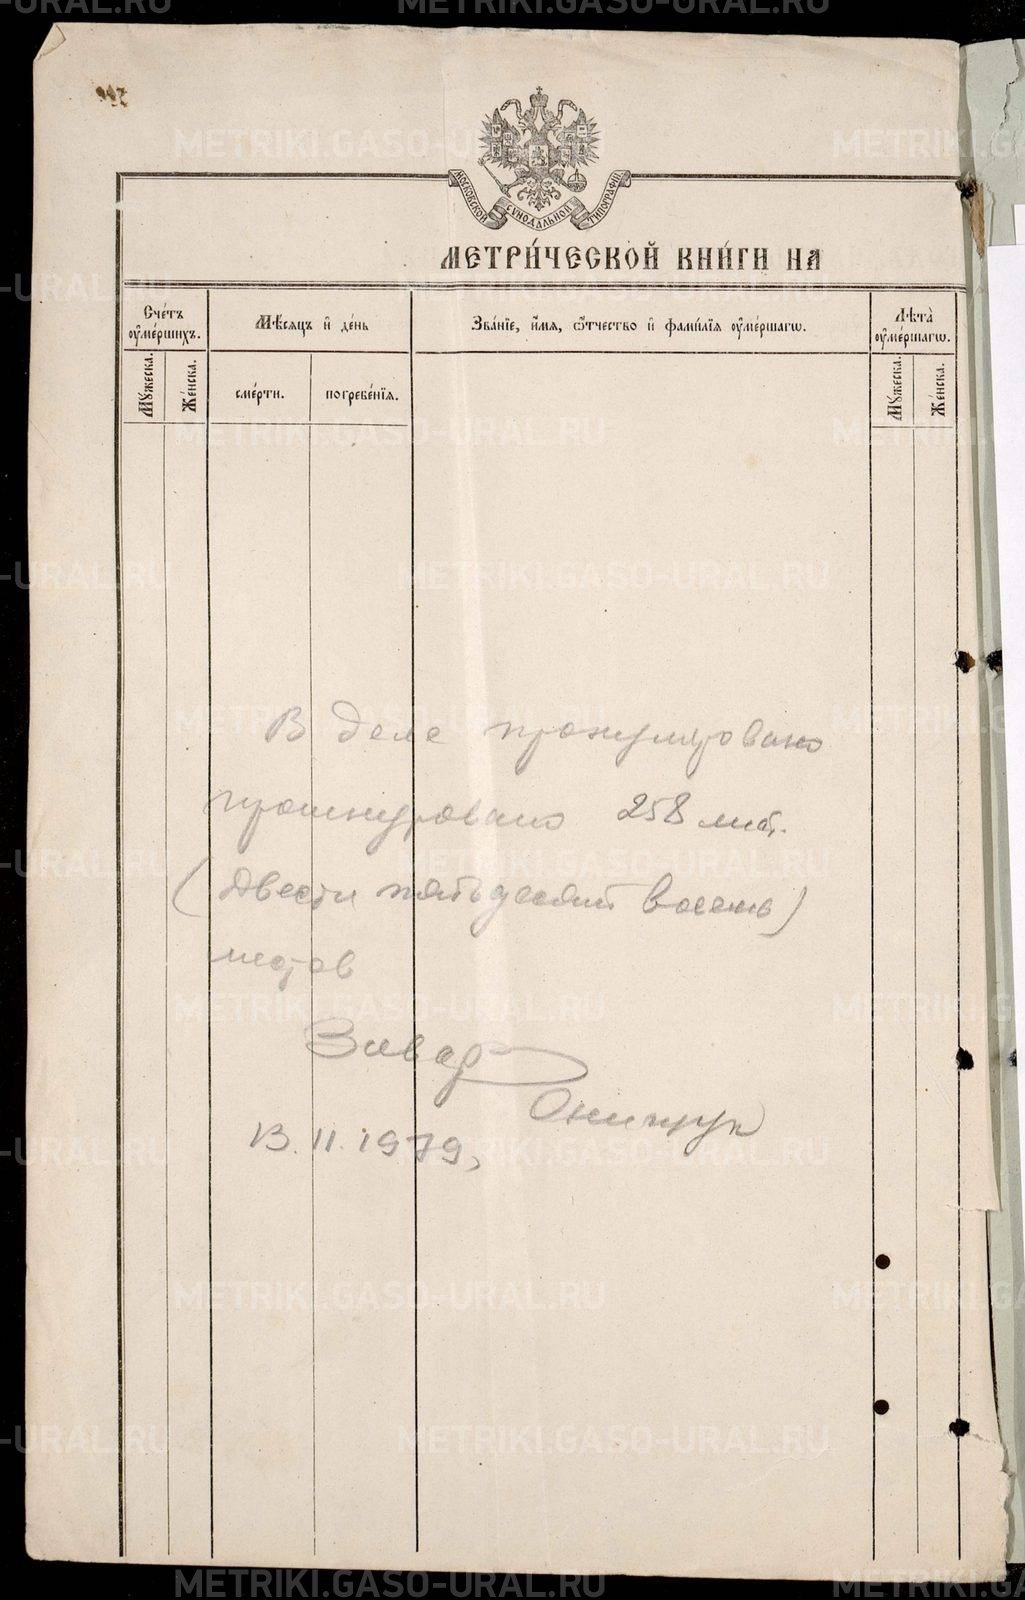 МОСКОВСКОЙ СѴНОДАЛЬНОЙ ТИПОГРАФІИ
МЕТРИ́ЧЕСКОЙ КНИ́ГИ НА
Сче́тъ ᲂу҆ме́ршихъ.
Мѣ́сяцъ и҆ де́нь
Зва́нїе, и҆́мя, ѻ҆́тчество и҆ фами́лїя ᲂу҆ме́ршагѡ.
Лѣта̀ ᲂу҆ме́ршагѡ.
Мꙋ́жеска.
Же́нска.
сме́рти.
погребе́нїѧ.
Мꙋ́жеска.
Же́нска.
В деле пронумеровано
прошнуровано 258 лист.
(двести пятьдесят восемь)
листов
13.11.1979,
METRIKI.GASO-URAL.RU